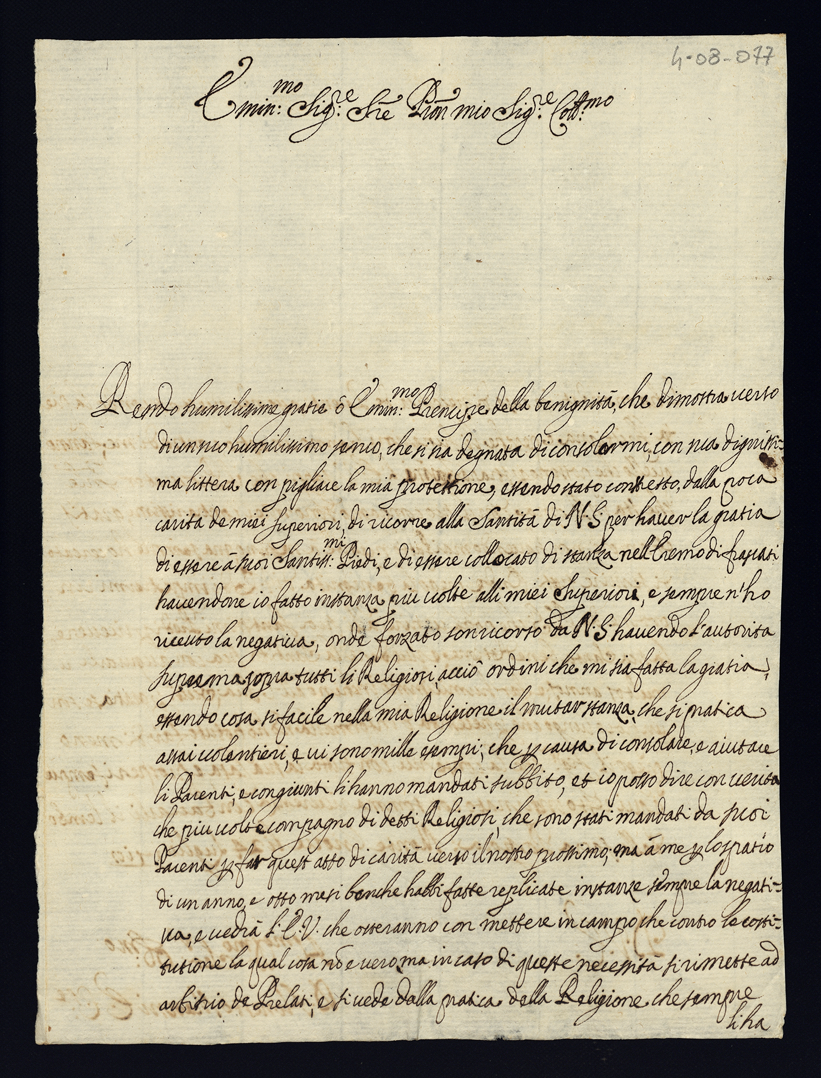 4-08-077
Emin:mo Sig:re Sre Pron mio Sig:re Coll:mo
Rendo humilissime gratie ô Emin:mo Prencipe della benignità, che dimostra verso
di un suo humilissimo servo, che si sia degnata di consolarmi, con sua dignissi=
ma littera con pigliare la mia protettione, essendo stato constretto, dalla poca
carità de miei superiori, di ricorre alla Santità di N S per haver la gratia
di essere â suoi Santiss:mi Piedi, e di essere collocato di stanza nell Eremo di frascati
havendone io fatto instanza più volte alli miei Superiori, e sempre n'ho
riceuto la negativa, onde forzato son ricorso da N.S. havendo l'autorità
suprema sopra tutti li Religiosi, acciô ordini che mi sia fatta la gratia,
essendo cosa si facile nella mia Religione il mutar stanza, che si pratica
assai volentieri, e vi sono mille esempi, che p causa di consolare, e aiutare
li Parenti, e congiunti li hanno mandati subbito, et io posso dire con verità
che più volte compagno di detti Religiosi, che sono stati mandati da suoi
Parenti p far quest atto di carità verso il nostro prossimo, ma â me p lo spatio
di un anno, e otto mesi benche habbi fatte replicate instanze sempre la negati=
va, e vedrà S. E. V. che osteranno con mettere in campo che contro le costi=
tutione la qual cosa nõ e vero, ma in caso di queste necessità si rimette ad
arbitrio de Prelati, e si vede dalla pratica della Religione che sempre
li ha